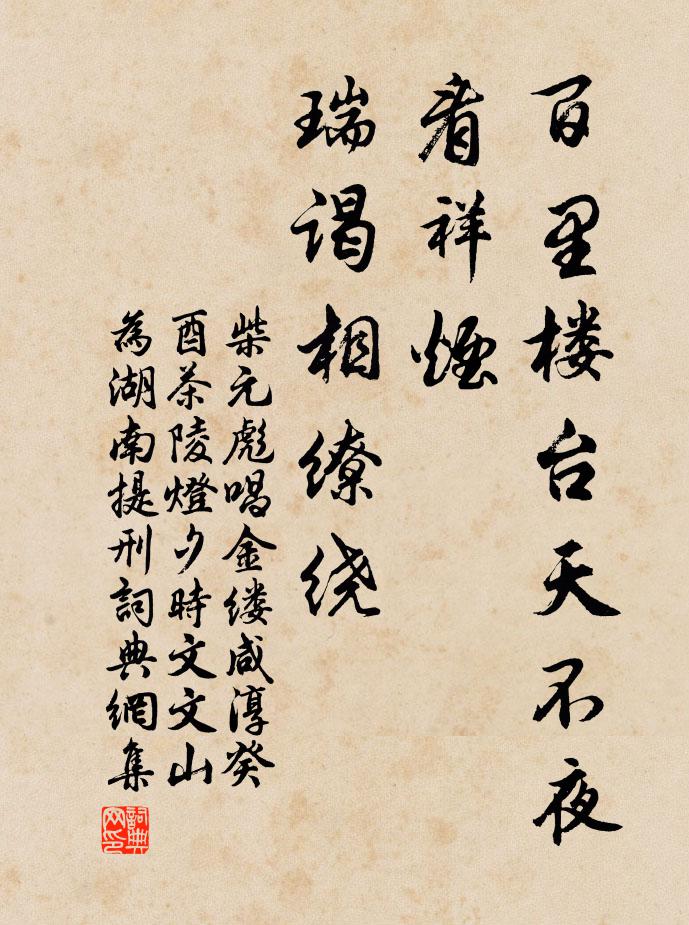 百里楼台天不夜
看祥煙
瑞谒相缭绕
柴元彪唱金缕咸淳癸
酉茶陵燈夕時文文山
為湖南提刑詞典網集
詞典
网印